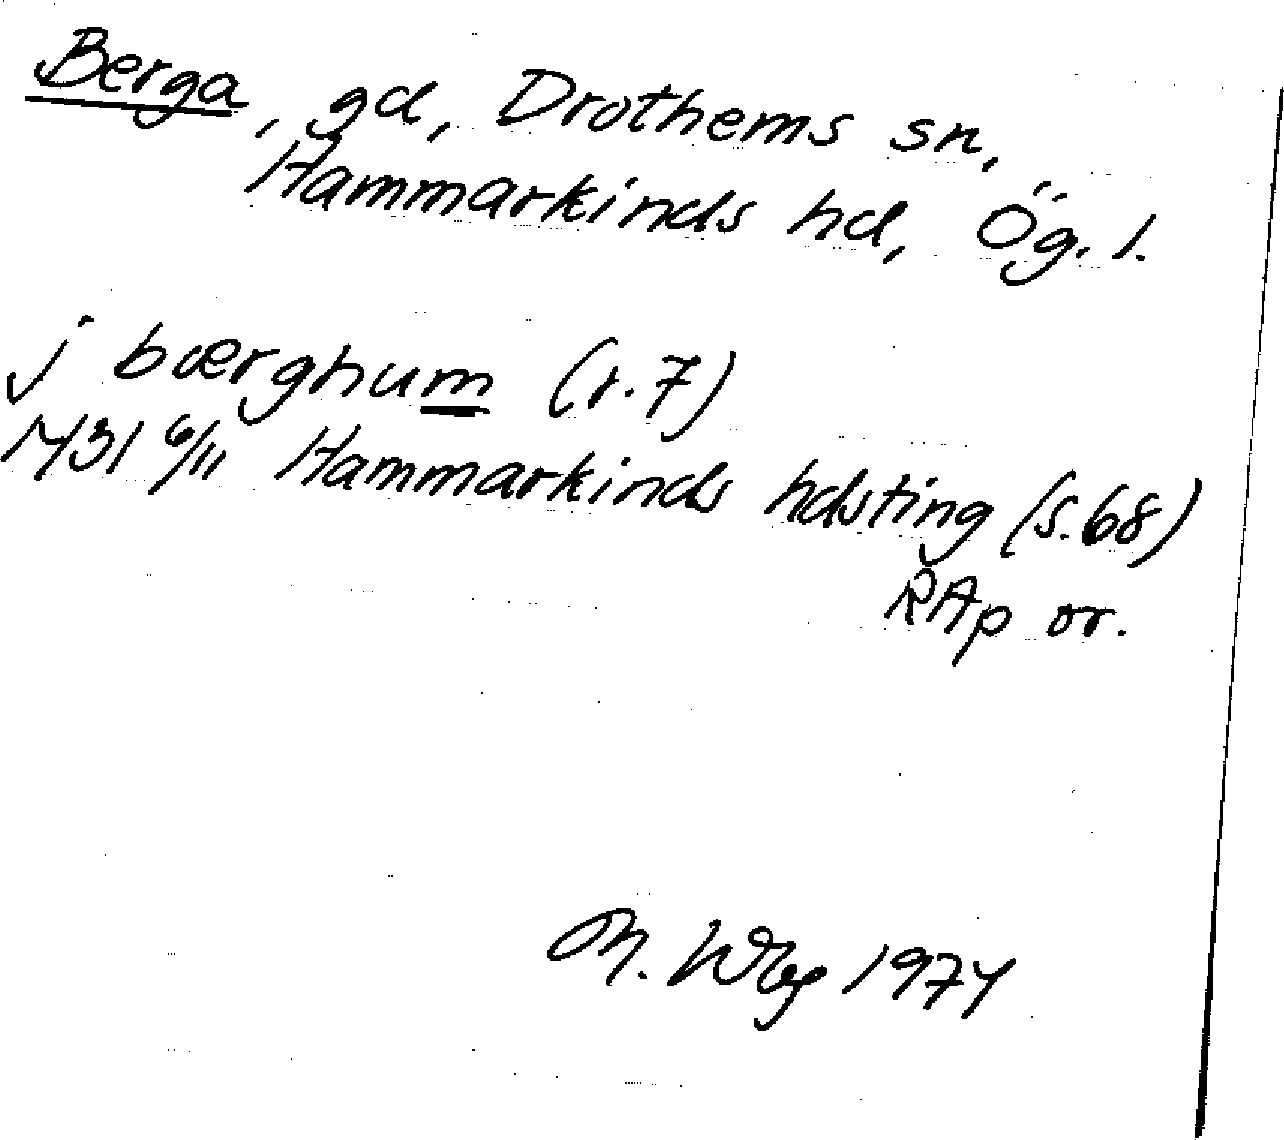 Berga, gd, Drothems sn,
Hammarkinds hd, Ög. l.
j bærghum (r. 7)
1431 6/11 Hammarkinds hdsting (s. 68)
RAp or.
1974